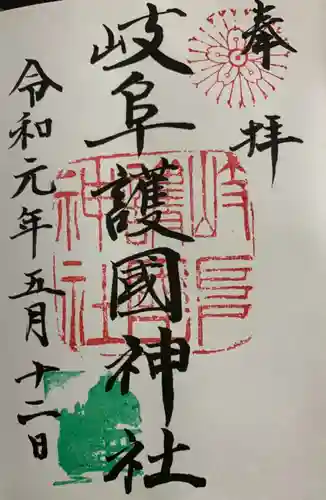 奉拝
岐阜護國神社
令和元年五月十二日
岐阜護國神社